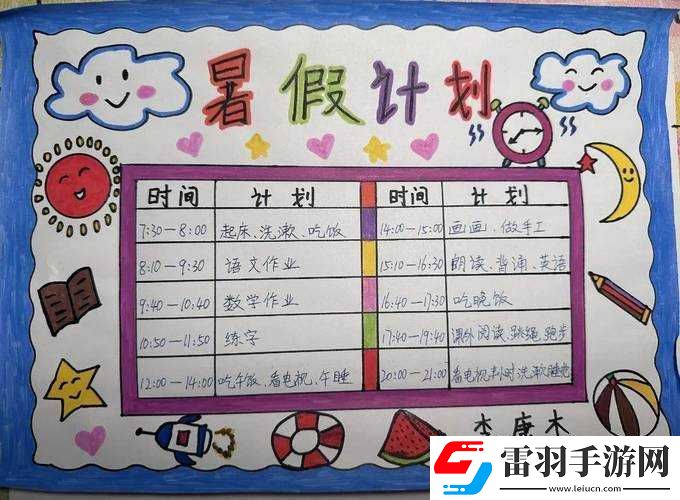 暑假计划
时间 计划 时间 计划
7:30—8:00 起床、洗漱、吃饭 14:00—15:00 画画、做手工
8:10—9:30 语文作业 15:10—16:30 朗读、背诵、英语
9:40—10:40 数学作业 16:40—17:30 吃晚饭
10:50—11:50 练字 17:40—19:40 课外阅读、跳绳、跑步
12:00—14:00 吃午饭、看电视、午睡 20:00—21:00 看电视半小时洗漱睡觉
雷羽手游网
www.leiucn.com